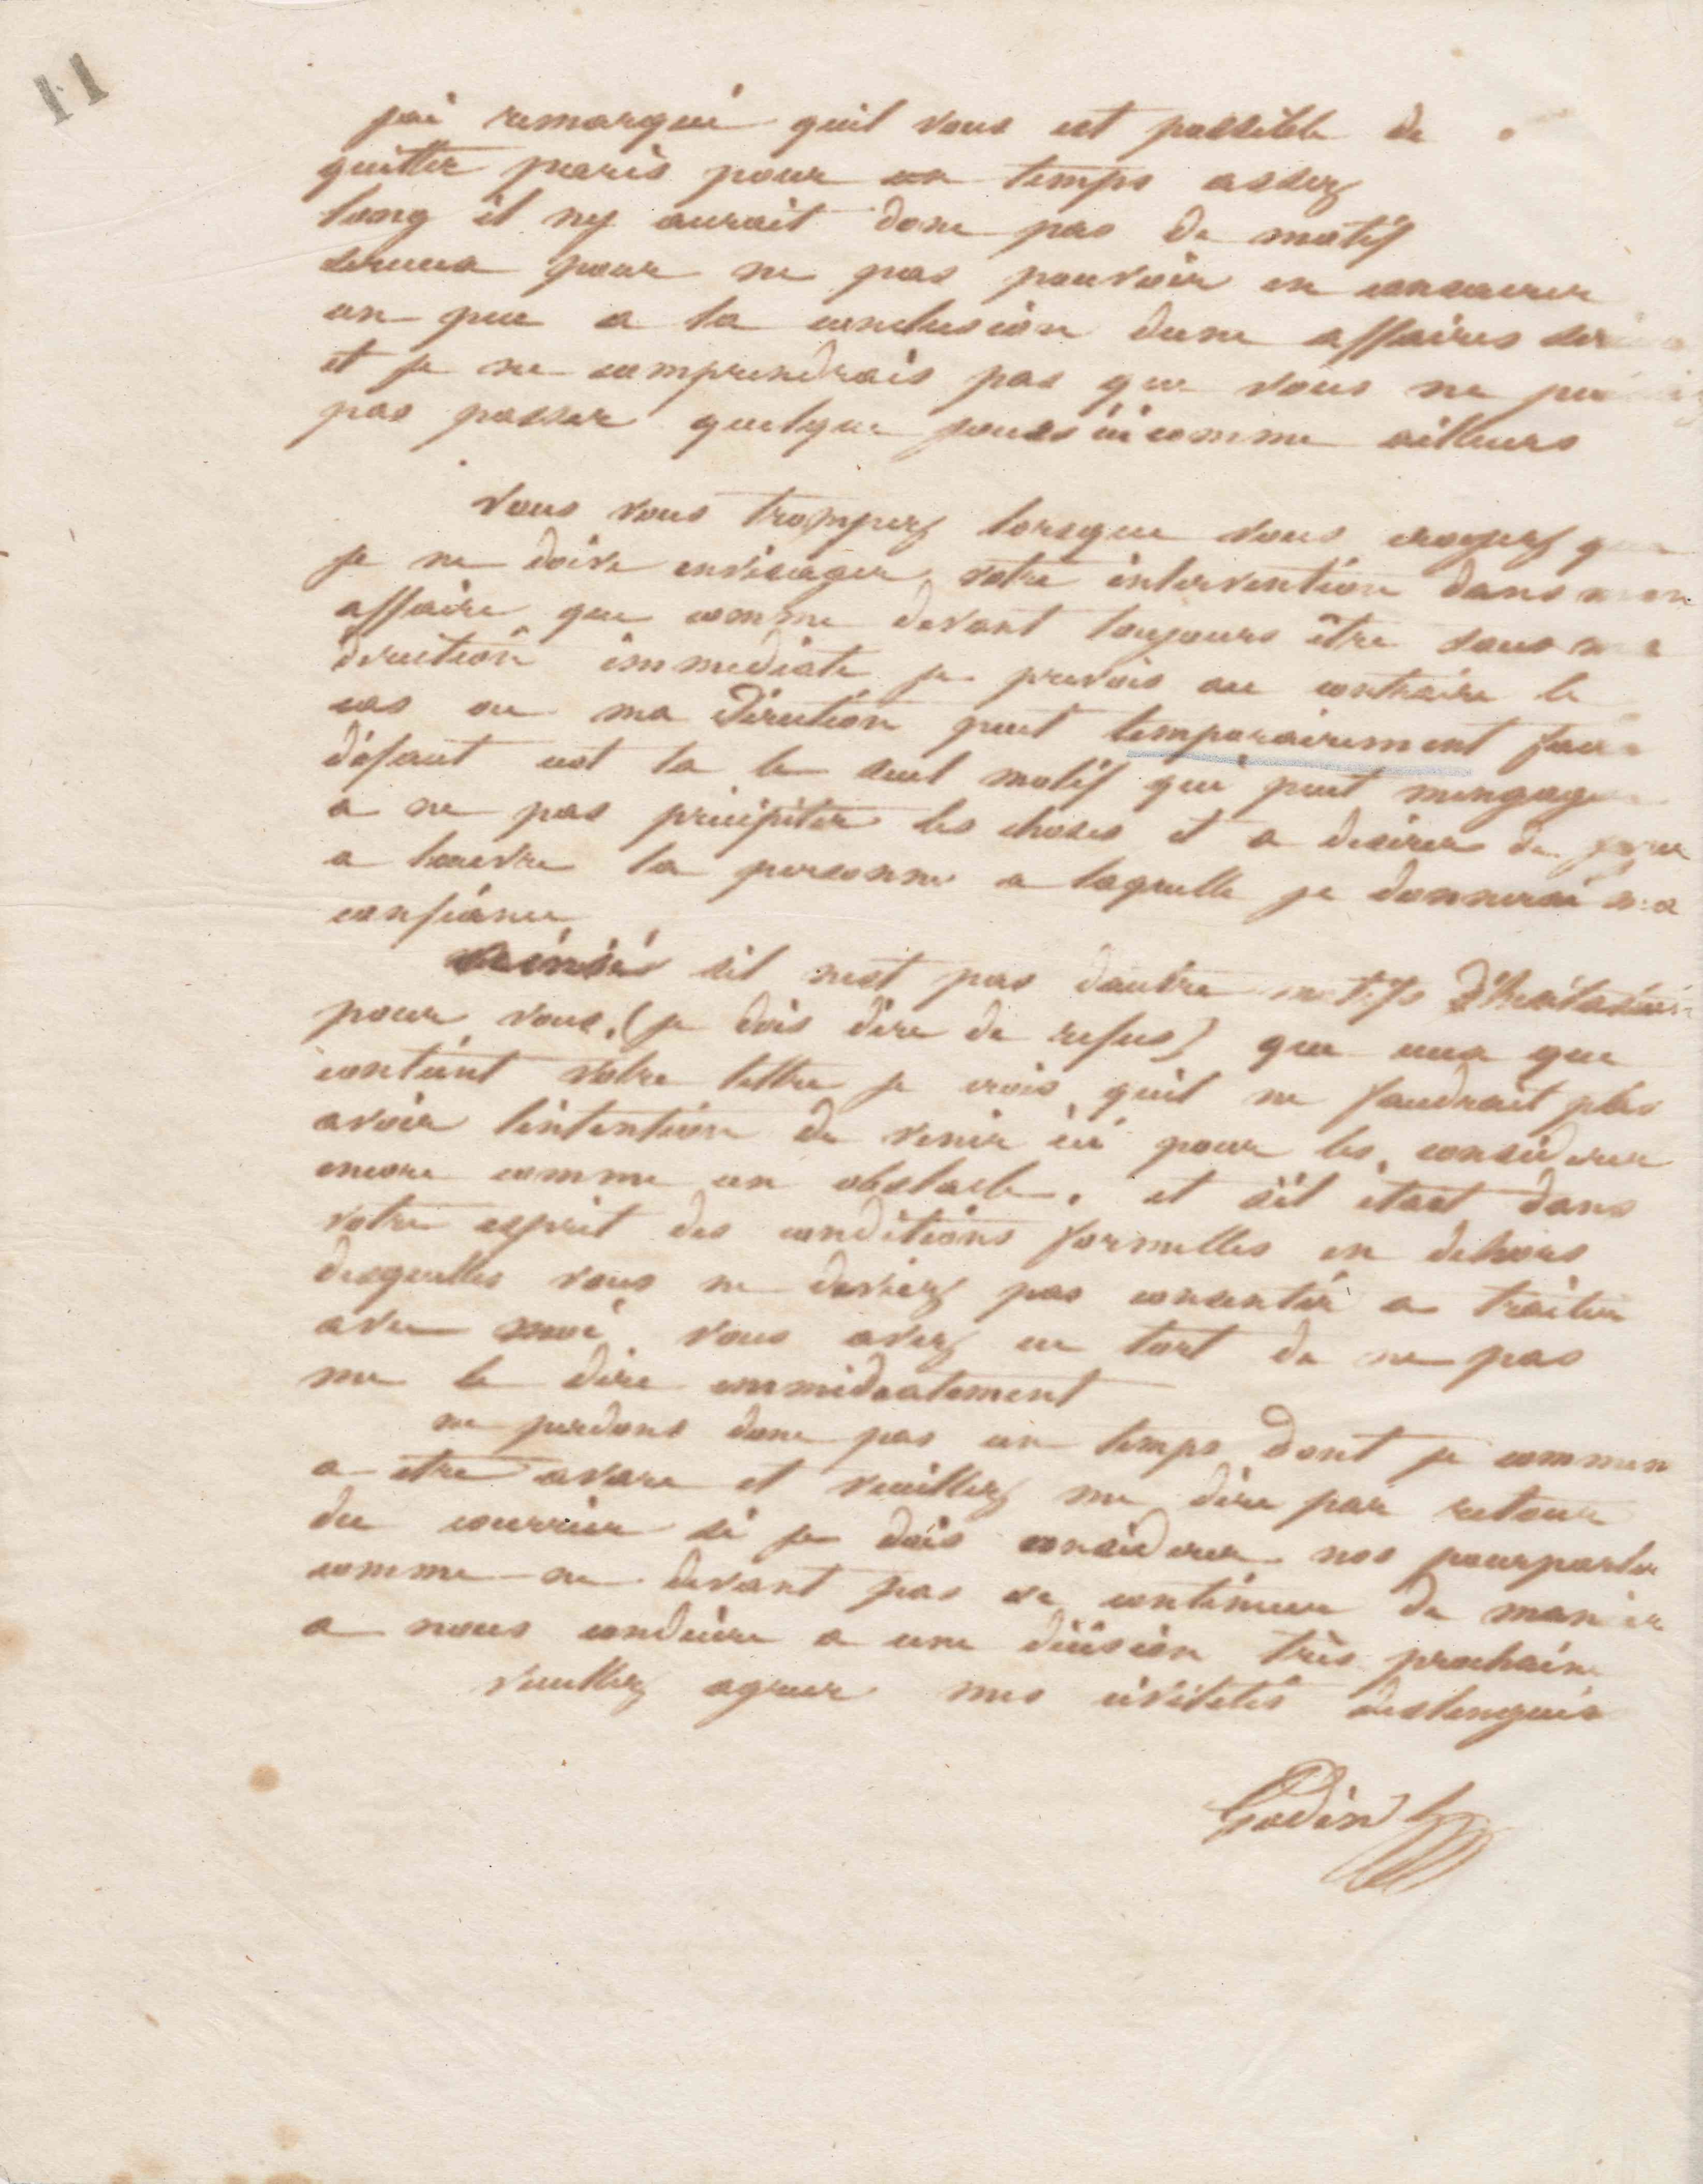 11
jai remarqué quil vous est possible de
quitter paris pour un temps assez
long il ny aurait donc pas de motif
serieux pour ne pas pouvoir en consacrer
un peu a la conclusion dune affaires
et je ne comprendrais pas que vous ne
pas passer quelque jours ici comme ailleurs
Vous vous trompez lorsque vous croyez
je ne doive envisager votre intervention dans mon
affaire que comme devant toujours être sous ma
direction immediate je prevois au contraire le
cas ou ma direction peut temporairement faire
défaut cest la le seul motif qui peut mengager
a ne pas précipiter les choses et a desirer de
a loeuvre la personne a laquelle je donnerai ma
confiance
sil nest pas dautre motifs d'hesitation
pour vous (je dois dire de refus) que ceux que
contient votre lettre je crois quil ne faudrait plus
avoir lintention de venir ici pour les considerer
encore comme un obstacle. et sil etait dans
votre esprit des conditions formelles en dehors
desquelles vous ne deviez pas consentir a traiter
avec moi vous avez eu tort de ne pas
me le dire immediatement
ne perdons donc pas un temps dont je commen
a etre avare et veuillez me dire par retour
du courrier si je dois considerer nos pourparler
comme ne devant pas se continuer de manière
a nous conduire a une décision très prochaine
veuillez agreer mes civilités distingués
Godin